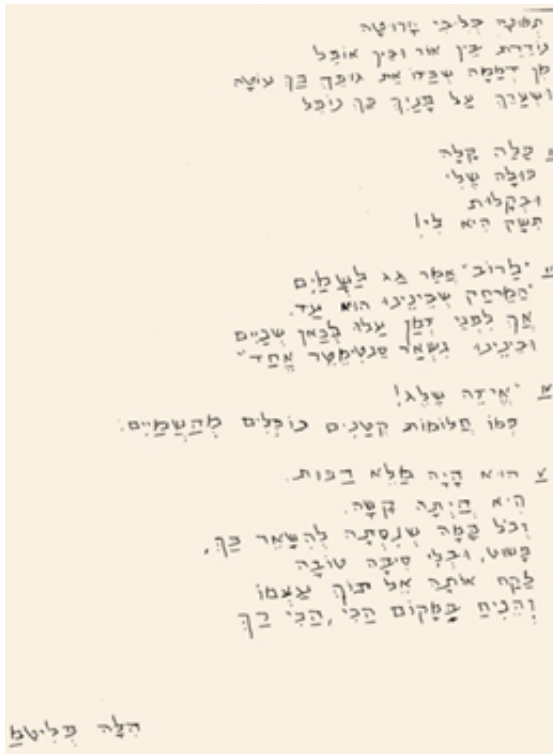 תְּמוּנָה בְּלִבִּי חֲרוּטָה
נוֹדֶדֶת בֵּין אוֹר וּבֵין אוֹפֶל
מִן דְּמָמָה שֶׁבָּה אֶת גּוּפֵךְ כָּךְ עוֹטָה
וּשְׂעָרֵךְ עַל פָּנַיִךְ כָּךְ נוֹפֵל
כַּלָּה קַלָּה
כּוּלָּה שֶׁלִּי
וּבְקַלּוּת
תִּשָּׁק הִיא לִי!
"לָרוֹב" אָמַר גַּג לַשָּׁמַיִם
"הַמֶּרְחָק שֶׁבֵּינֵינוּ הוּא עַד.
אַךְ לִפְנֵי זְמַן עָלוּ לְכָאן שְׁנַיִים
וּבֵינֵינוּ נִשְׁאַר סֶנְטִימֶטֶר אֶחָד"
"אֵיזֶה שֶׁלֶג!
כְּמוֹ חֲלוֹמוֹת קְטַנִּים נוֹפְלִים מֵהַשָּׁמַיִים.
הוּא הָיָה מַלֵּא רַכּוּת.
הִיא הָיְתָה קָשָׁה.
וְכֹל כַּמָּה שֶׁנִּסְּתָה לְהִשָּׁאֵר כָּךְ,
פָּשׁוּט, וּבְלִי סִיבָּה טוֹבָה
לָקַח אוֹתָהּ אֶל תּוֹךְ עַצְמוֹ
וְהֵנִיחַ בַּמָּקוֹם הַכִי, הַכִי רַךְ
הִלָּה